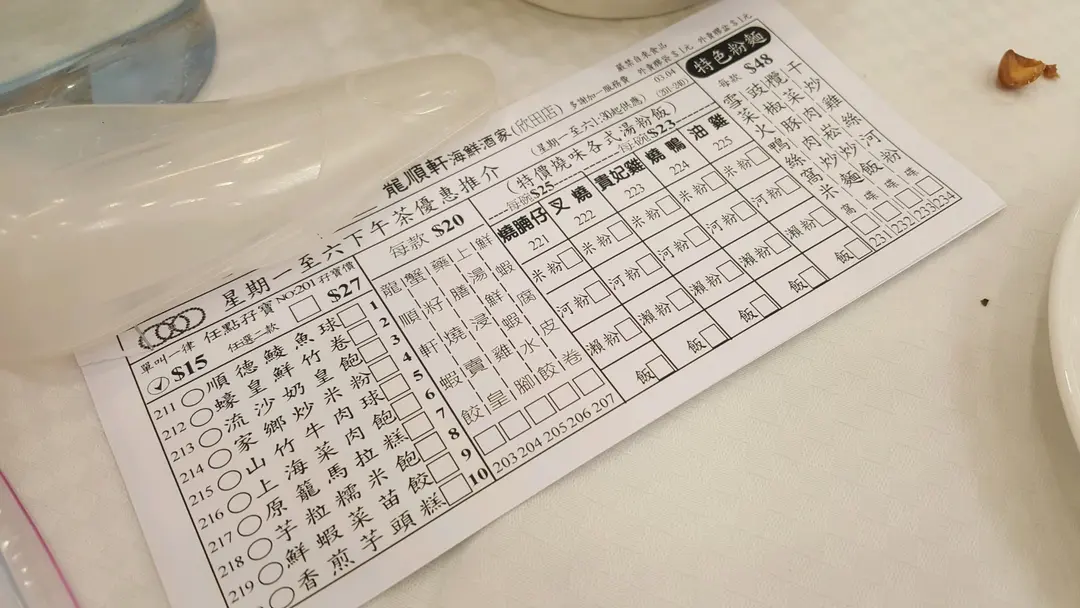 嚴禁自來食品
外賣膠袋$1元 外賣膠盒$1元
龍順軒海鮮酒家(欣田店) 多謝加一服務費 03.04
星期一至六下午茶優惠推介 (星期一至六1:30起供應) (201-240)
任點孖寶 NO201孖寶價
任選二款 $27
單叫一律
$15
211 順德鯪魚球 1
212 蠔皇鮮竹卷 2
213 流沙奶皇飽 3
214 家鄉炒米粉 4
215 山竹牛肉球 5
216 上海菜肉飽 6
217 原籠馬拉糕 7
218 芋粒糯米飽 8
219 鮮蝦菜苗餃 9
香煎芋頭糕 10
每款 $20
龍順軒蝦餃 203
蟹籽燒賣皇 204
藥膳浸雞腳 205
上湯鮮蝦水餃 206
鮮蝦腐皮卷 207
(特價燒味各式湯粉飯)
每份$25
每份$23
燒腩仔 221 米粉 河粉 瀨粉 飯
叉燒 222 米粉 河粉 瀨粉 飯
貴妃雞 223 米粉 河粉 瀨粉 飯
燒鴨 224 米粉 河粉 瀨粉 飯
油雞 225 米粉 河粉 瀨粉 飯
特色粉麵
每款 $48
雪菜火鴨絲窩米 窩 231
豉椒豚肉炒麵 碟 232
欖菜肉崧炒飯 碟 233
干炒雞絲河粉 碟 234